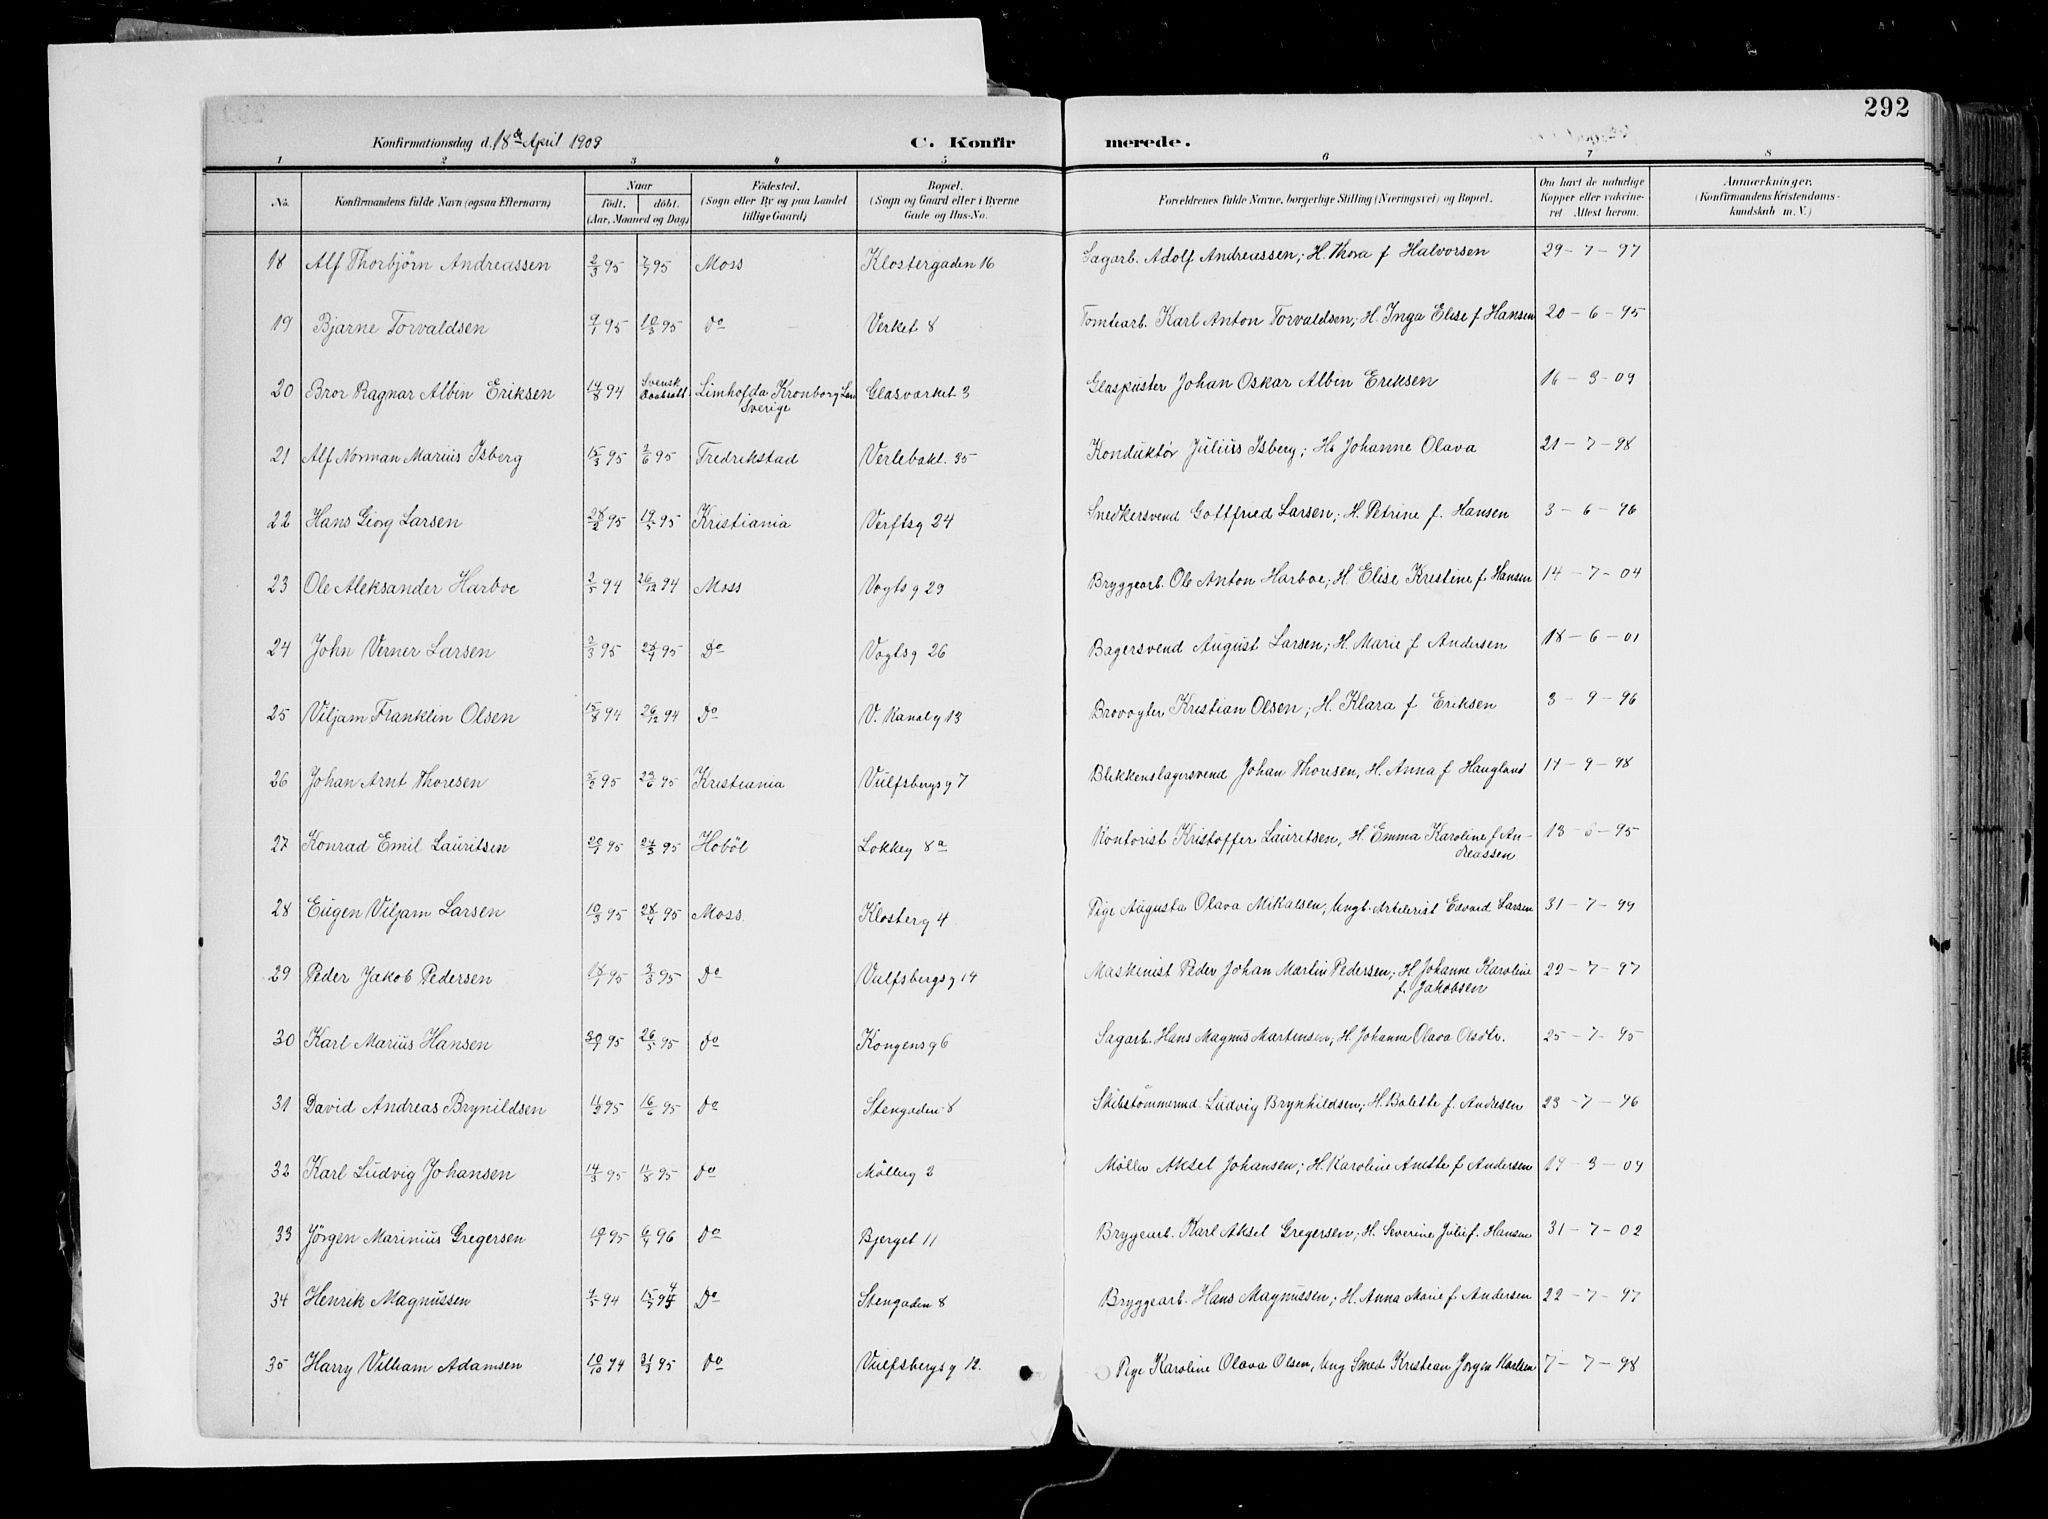 292
Konfirmationsdag d. 18de April 1909 C. Konfirmerede.
1 2 3 4 5 6 7 8
No. Konfirmandens fulde Navn (ogsaa Efternavn) Naar født. døbt. (Aar, Maaned og Dag) Fødested. (Sogn eller By og paa Landet tillige Gaard) Bopæl. (Sogn og Gaard eller i Byerne Gade og Hus-No. Forældrenes fulde Navne, borgerlige Stilling (Næringsvei) og Bopæl. Om havt de naturlige Kopper eller vakcineret Attest herom. Anmærkninger. (Konfirmandens Kristendomskundskab m. V.)
18 Alf Thorbjørn Andreassen 2/3 95 7/7 95 Moss Klostergaden 16 Sagarb. Adolf Andreassen; H. Thora f Halvorsen 29-7-97
19 Bjarne Torvaldsen 9/1 95 10/3 95 do Verket 8 Tomtearb. Karl Anton Torvaldsen; H. Inga Elise f Hansen 20-6-95
20 Bror Ragnar Albin Eriksen 14/8 94 Svensk Limhofda Kronborg Len Sverige Glasværket 3 Glaspuster Johan Oskar Albin Eriksen 16-3-09
21 Alf Norman Marius Isberg 15/3 95 3/6 95 Fredrikstad Verlebakl. 35 Konduktør Julius Isberg; H. Johanne Olava 21-7-98
22 Hans Giorg Larsen 28/2 95 19/5 95 Kristiania Verftsg 24 Snedkersvend Gottfried Larsen; H. Petrine f. Hansen 3-6-96
23 Ole Aleksander Harboe 2/5 94 26/12 94 Moss Vogtsg 29 Bryggearb. Ole Anton Harboe; H. Elise Kristine f Hansen 14-7-04
24 John Verner Larsen 2/3 95 28/4 95 Do Vogtsg 26 Bagersvend August Larsen; H. Marie f Andersen 18-6-01
25 Viljam Franklin Olsen 15/8 94 26/12 94 Do V. Kanalg 13 Brovogter Kristian Olsen; H. Klara f Eriksen 3-9-96
26 Johan Arnt Thoresen 5/3 95 23/6 95 Kristiania Vulfsbergsg 7 Blikkenslagersvend Johan Thoresen, H. Anna f Haugland 14-9-98
27 Konrad Emil Lauritsen 20/1 95 24/3 95 Hobøl Lokkeg 8a Kontorist Kristoffer Lauritsen, H. Emma Karoline f Andreassen 13-6-95
28 Eugen Viljam Larsen 10/3 95 28/4 95 Moss Klosterg 4 Pige Augusta Olava Mikalsen, Ungk. Artelerist Edvard Larsen 31-7-99
29 Peder Jakob Pedersen 18/1 95 3/3 95 Do Vulfsbergsg 14 Maskinist Peder Johan Martin Pedersen; H Johanne Karoline f. Jakobsen 22-7-97
30 Karl Marius Hansen 30/1 95 26/5 95 do Kongensg 6 Sagarb. Hans Magnus Martinsen; H. Johanne Olava Olsdtr. 25-7-95
31 David Andreas Brynildsen 11/3 95 16/6 95 do Stengaden 8 Skibstømmermd. Ludvig Brynhildsen; H. Bolette f. Andresen 23-7-96
32 Karl Ludvig Johansen 14/3 95 11/8 95 Do Mölleg 2 Møller Aksel Johansen; H. Karoline Anette f Andersen 19-3-09
33 Jörgen Marinius Gregersen 95 6/4 96 Do Bjerget 11 Bryggearb. Karl Aksel Gregersen; H. Severine Julie f. Hansen 31-7-02
34 Henrik Magnussen 94 15/7 94 Do Stengaden 8 Bryggearb. Hans Magnussen; H. Anna Marie f Andersen 22-7-97
35 Harry Villiam Adamsen 10/10 94 31/3 95 do Vulfsbergsg 12. Pige Karoline Olava Olsen, Ung Smed Kristian Jørgen Karlsen 7-7-98